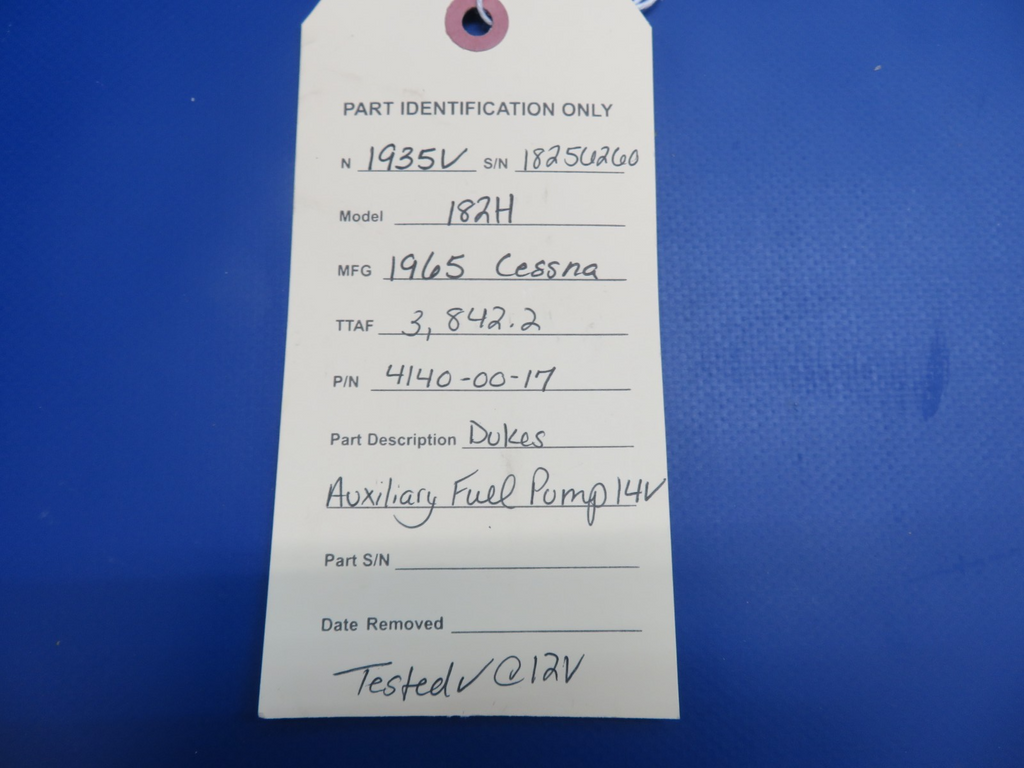 PART IDENTIFICATION ONLY
N 1935V S/N 18256260
Model 182H
MFG 1965 Cessna
TTAF 3,842.2
P/N 4140-00-17
Part Description Dukes
Auxiliary Fuel Pump 14V
Part S/N
Date Removed
Tested ✓ @ 12V